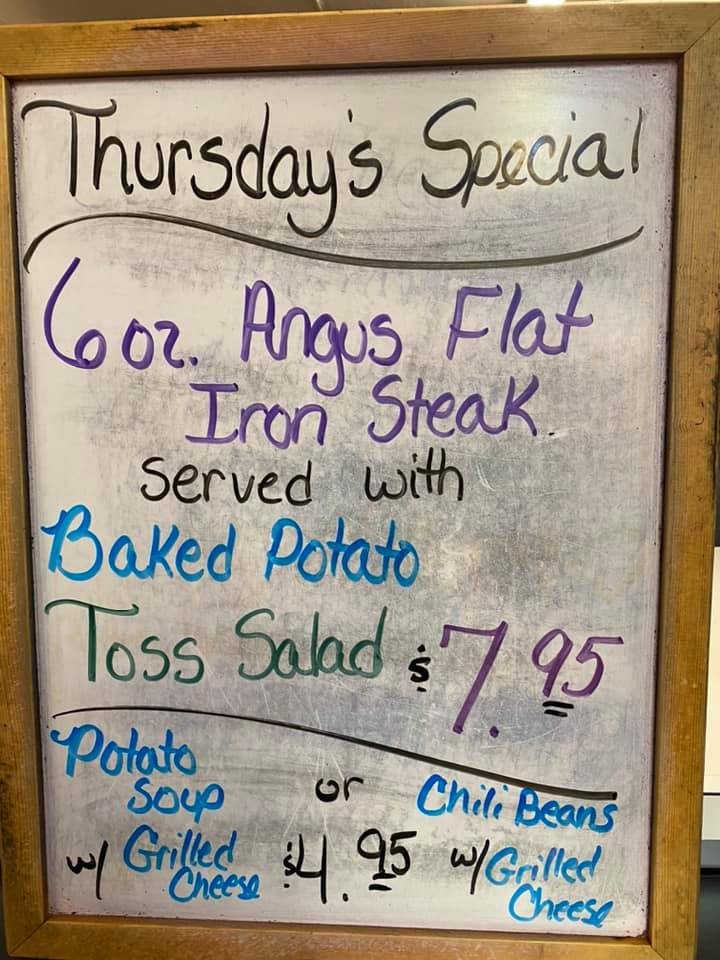 Thursday's Special
6 oz. Angus Flat
Iron Steak
Served with
Baked Potato
Toss Salad $7.95
Potato
Soup
or
Chili Beans
w/ Grilled
Cheese
$4.95
w/ Grilled
Cheese